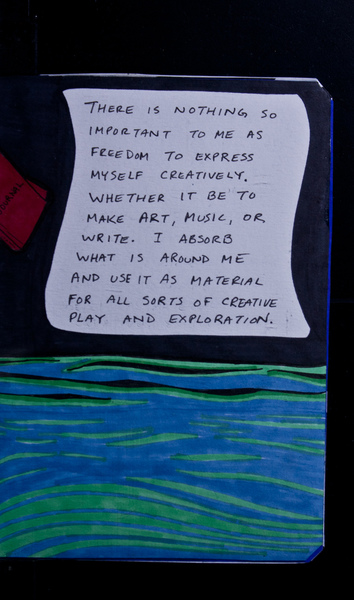 THERE IS NOTHING SO
IMPORTANT TO ME AS
FREEDOM TO EXPRESS
MYSELF CREATIVELY.
WHETHER IT BE TO
MAKE ART, MUSIC, OR
WRITE. I ABSORB
WHAT IS AROUND ME
AND USE IT AS MATERIAL
FOR ALL SORTS OF CREATIVE
PLAY AND EXPLORATION.